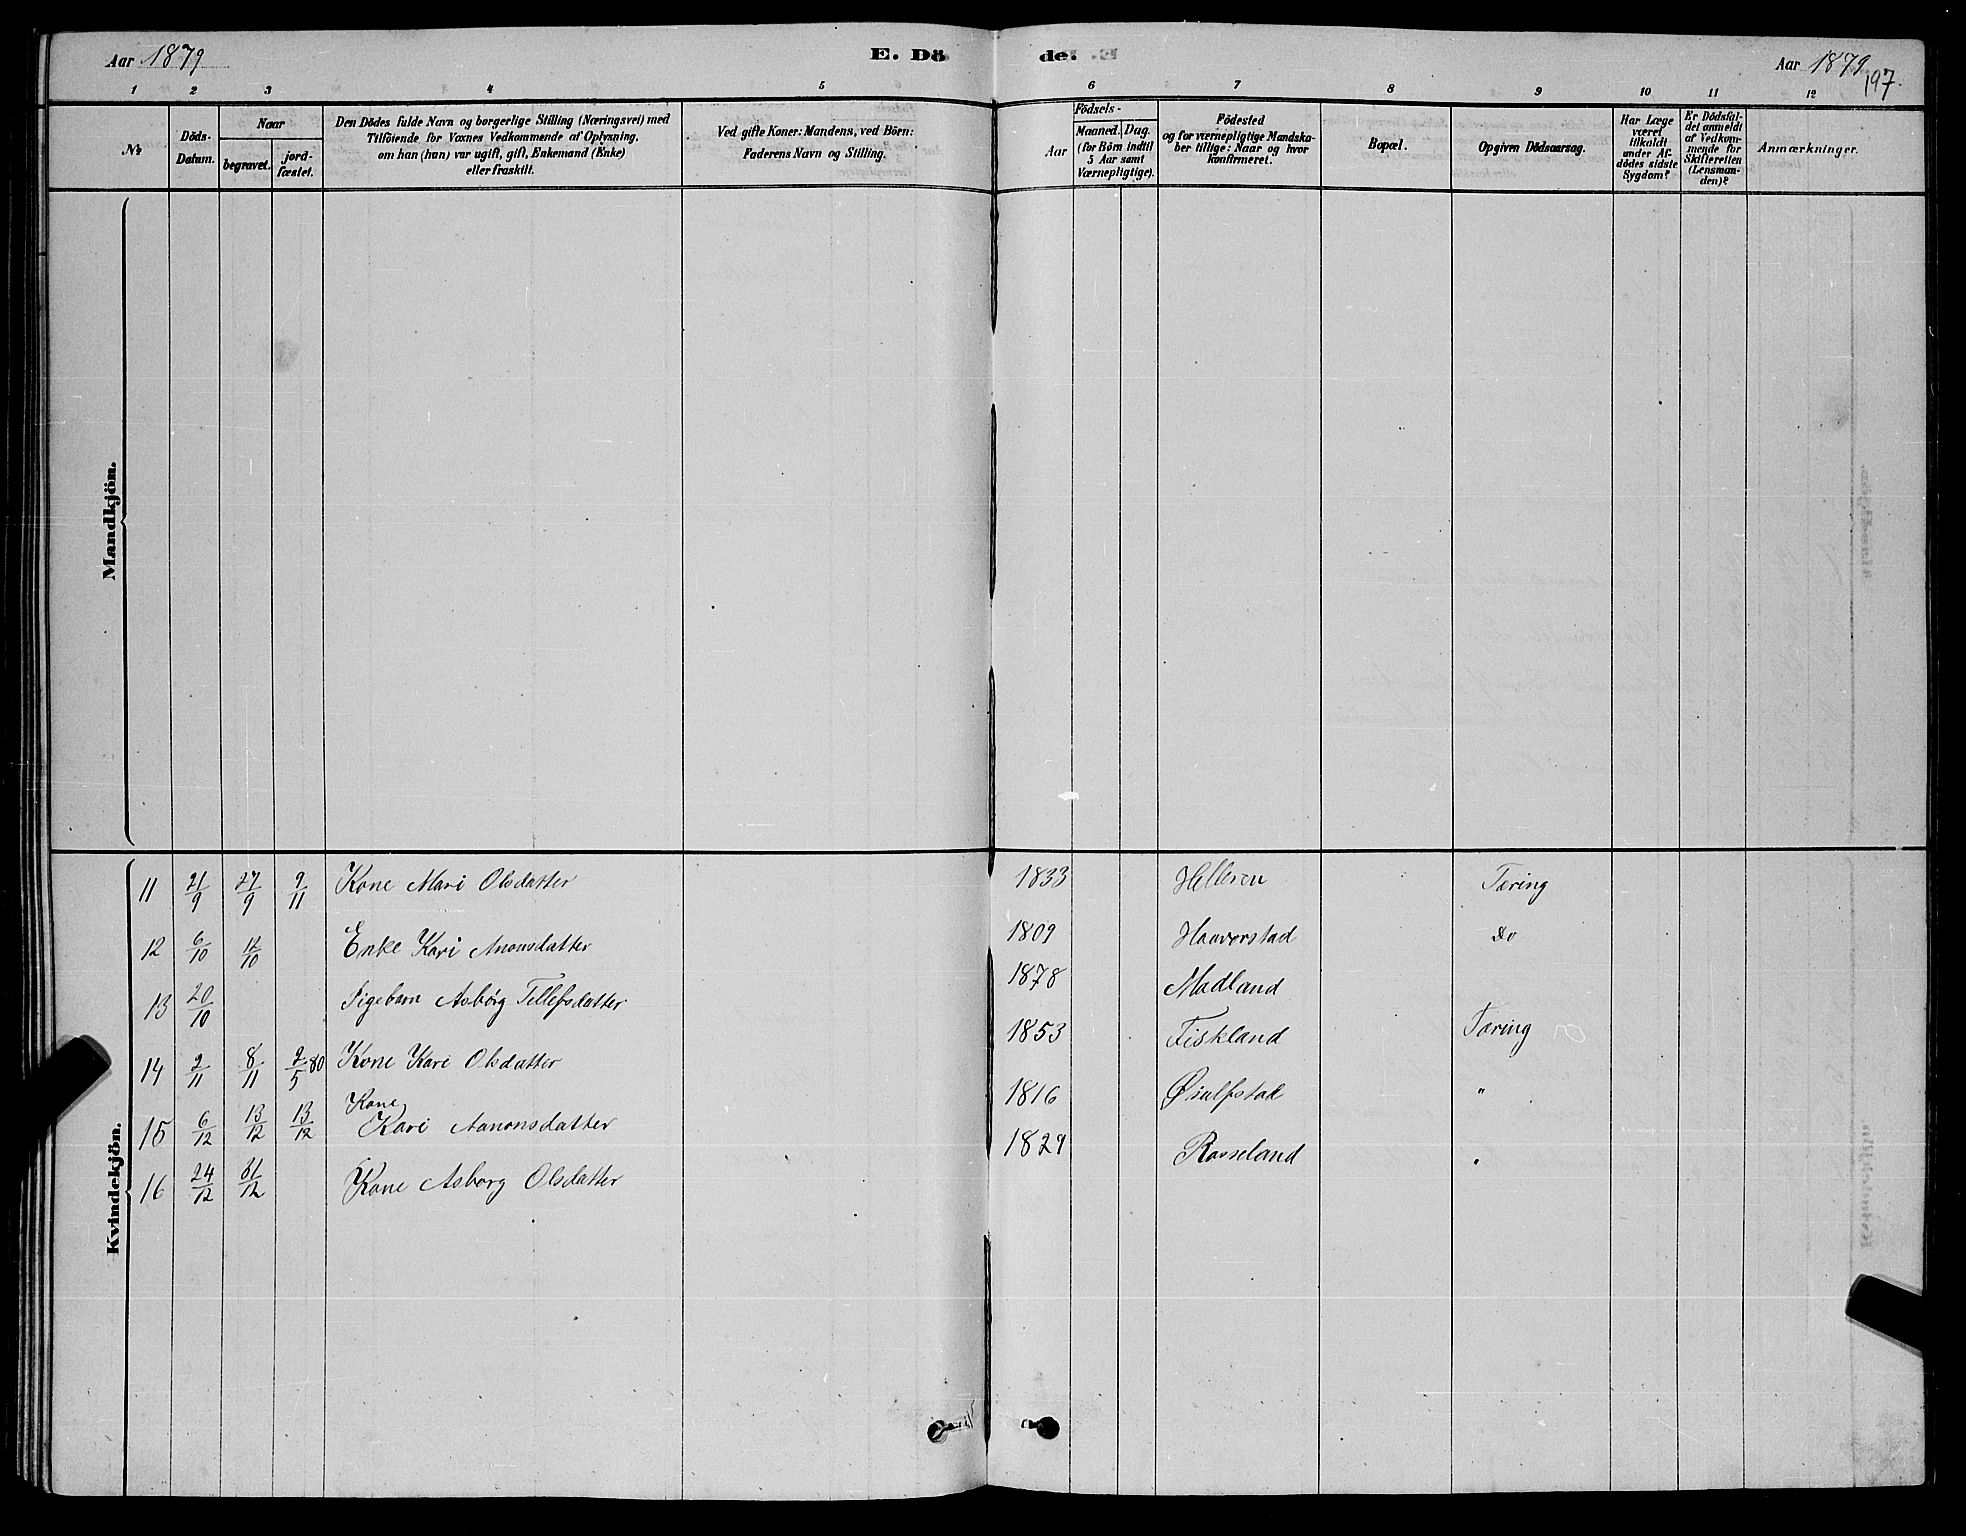 Aar 1879
E. Dö
de.
Aar 1879
197.
1 2 3 4 5 6 7 8 9 10 11 12
№
Döds-
Datum.
Naar
begravet.
jord-
fæstet.
Den Dödes fulde Navn og borgerlige Stilling (Næringsvei) med
Tilföiende for Voxnes Vedkommende af Oplysning,
om han (hun) var ugift, gift, Enkemand (Enke)
eller fraskilt.
Ved gifte Koner: Mandens, ved Börn:
Faderens Navn og Stilling.
Födsels-
Aar
Maaned. Dag.
(for Börn indtil
5 Aar samt
Værnepligtige).
Födested
og for værnepligtige Mandska-
ber tillige: Naar og hvor
konfirmeret.
Bopæl.
Opgiven Dödsaarsag.
Har Læge
været
tilkaldt
under Af-
dödes sidste
Sygdom?
Er Dödsfal-
det anmeldt
af Vedkom-
mende for
Skifteretten
(Lensman-
den)?
Anmærkninger.
Mandkjön.
Kvindekjön.
11 21/9 27/9 9/11 Kone Mari Olsdatter 1833 Helleren Tæring
12 6/10 12/10 Enke Kari Anonsdatter 1809 Haaverstad Do
13 20/10 Pigebarn Asbörg Tellefsdatter 1878 Madland
14 2/11 8/11 2/5 80 Kone Kari Olsdatter 1853 Fiskland Tæring
Kone
15 6/12 13/12 13/12 Kari Aanonsdatter 1816 Øiulfstad "
16 24/12 31/12 Kone Asborg Olsdatter 1829 Rosseland "